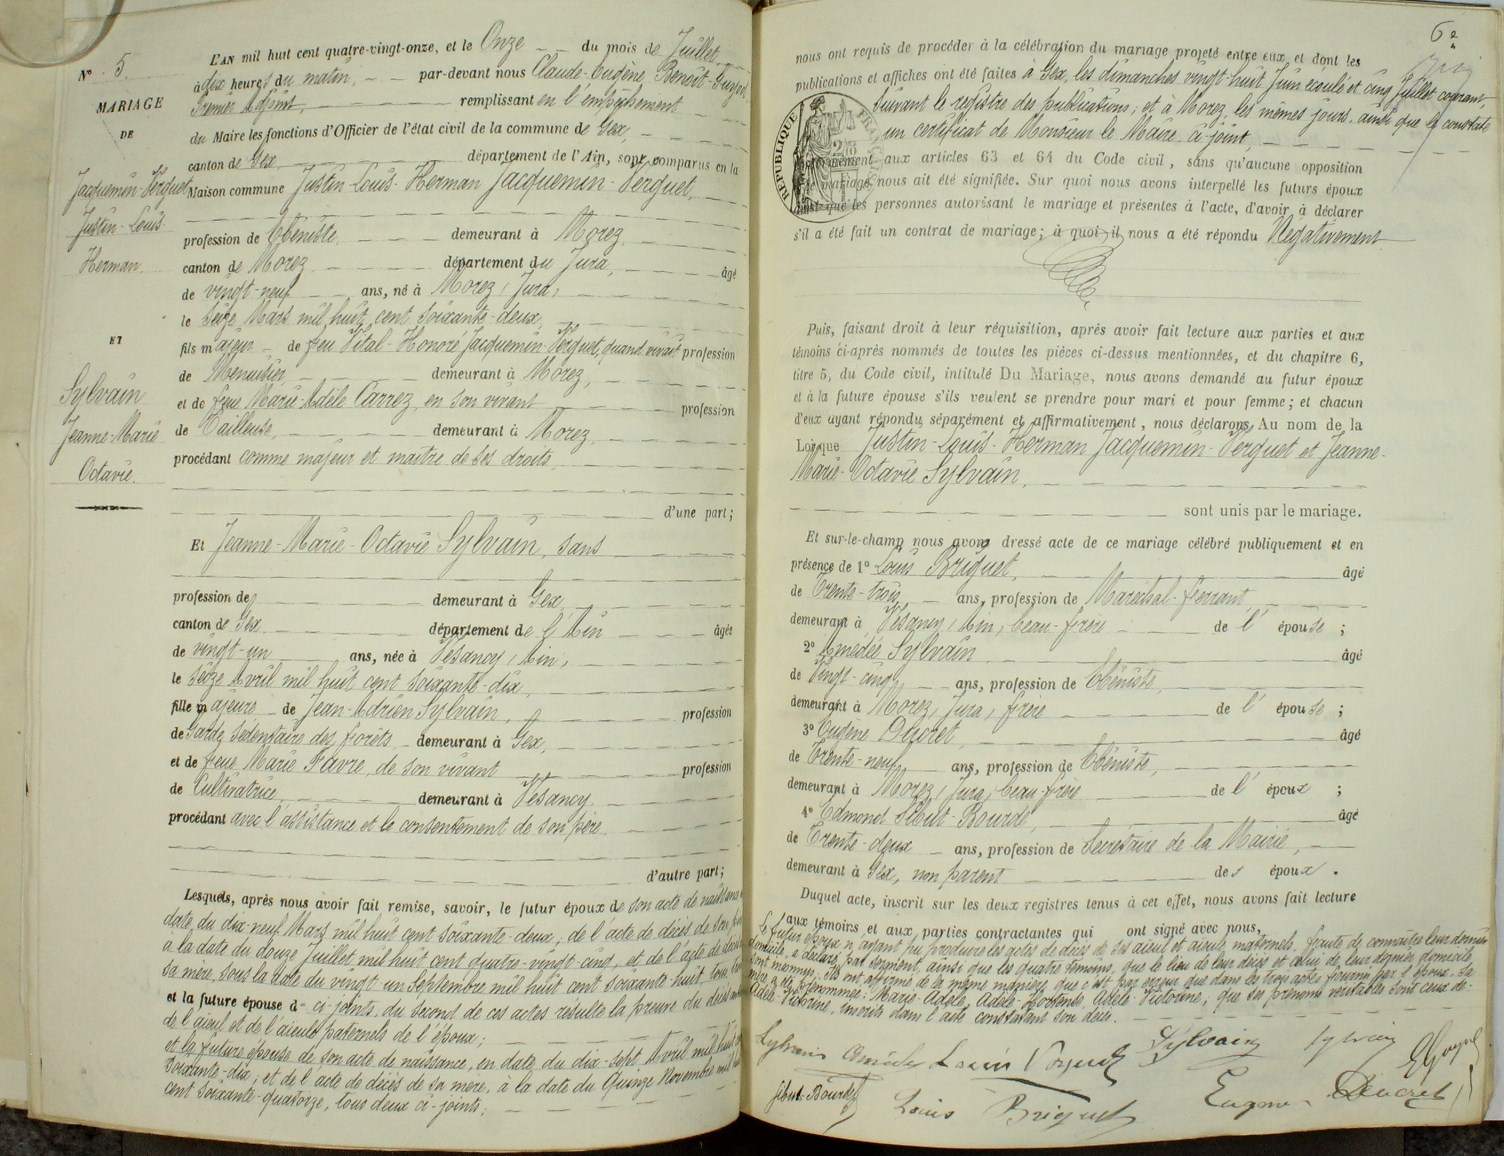 N° 5.
MARIAGE
DE
Jacquemin-Verguet
Justin-Louis
Herman.
ET
Sylvain
Jeanne-Marie
Octavie.
L'AN mil huit cent quatre-vingt-onze, et le Onze du mois de Juillet,
à dix heures du matin, par-devant nous Claude-Eugène Benoit-
Premier Adjoint, remplissant en l'empêchement
du Maire les fonctions d'Officier de l'état civil de la commune de Gex,
canton de Gex département de l'Ain, sont comparus en la
Maison commune Justin-Louis-Herman Jacquemin-Verguet,
profession de Ebéniste demeurant à Morez
canton de Morez département du Jura, âgé
de vingt-neuf ans, né à Morez, Jura,
le seize Mars mil huit cent soixante-deux,
fils majeur de feu Vital-Honoré Jacquemin-Verguet, quand vivait profession
de Menuisier, demeurant à Morez,
et de feue Marie-Adèle Carrez, en son vivant profession
de Tailleuse, demeurant à Morez
procédant comme majeur et maître de ses droits
d'une part;
Et Jeanne-Marie-Octavie Sylvain, sans
profession de demeurant à Gex
canton de Gex département de l'Ain âgée
de vingt-un ans, née à Vesancy, Ain,
le seize Avril mil huit cent soixante-dix,
fille majeure de Jean-Adrien Sylvain, profession
de Garde sédentaire des forêts demeurant à Gex,
et de feue Marie Favre, de son vivant profession
de Cultivatrice demeurant à Vesancy
procédant avec l'assistance et le consentement de son père
d'autre part;
Lesquels, après nous avoir fait remise, savoir, le futur époux de son acte de naissance
date du dix-neuf Mars mil huit cent soixante-deux; de l'acte de décès de son père
à la date du douze Juillet mil huit cent quatre-vingt-cinq, et de l'acte de décès
sa mère, sous la date du vingt un Septembre mil huit cent soixante huit, tous
et la future épouse d- ci-joints, du second de ces actes résulte la preuve du décès
de l'aïeul et de l'aïeule paternels de l'époux;
et la future épouse de son acte de naissance, en date du dix-sept Avril mil huit
soixante-dix; et de l'acte de décès de sa mère, à la date du Quinze Novembre mil
cent soixante-quatorze, tous deux ci-joints;
6e
nous ont requis de procéder à la célébration du mariage projeté entre eux et dont les
publications et affiches ont été faites à Gex, les dimanches vingt-huit Juin écoulé et cinq Juillet courant
suivant le registre des publications; et à Morez, les mêmes jours, ainsi que le constate
un certificat de Monsieur le Maire ci-joint,
RÉPUBLIQUE FRANÇAISE
conformément aux articles 63 et 64 du Code civil, sans qu'aucune opposition
mariage nous ait été signifiée. Sur quoi nous avons interpellé les futurs époux
ainsi que les personnes autorisant le mariage et présentes à l'acte, d'avoir à déclarer
s'il a été fait un contrat de mariage; à quoi il nous a été répondu Négativement
Puis, faisant droit à leur réquisition, après avoir fait lecture aux parties et aux
témoins ci-après nommés de toutes les pièces ci-dessus mentionnées, et du chapitre 6,
titre 5, du Code civil, intitulé Du Mariage, nous avons demandé au futur époux
et à la future épouse s'ils veulent se prendre pour mari et pour femme; et chacun
d'eux ayant répondu séparément et affirmativement, nous déclarons Au nom de la
Loi que Justin-Louis-Herman Jacquemin-Verguet et Jeanne-
Marie-Octavie Sylvain,
sont unis par le mariage.
Et sur-le-champ nous avons dressé acte de ce mariage célébré publiquement et en
présence de 1° Louis Briguet, âgé
de Trente-trois ans, profession de Maréchal-ferrant
demeurant à Vesancy, Ain, beau-frère de l'épouse;
2° Amédée Sylvain âgé
de Vingt-cinq ans, profession de Ebéniste,
demeurant à Morez, Jura, frère de l'épouse;
3° Eugène Ducret, âgé
de Trente-neuf ans, profession de Ebéniste,
demeurant à Morez, Jura, beau-frère de l'époux;
4° Edmond Sibut-Bourde, âgé
de Trente-deux ans, profession de Secrétaire de la Mairie,
demeurant à Gex, non parent des époux.
Duquel acte, inscrit sur les deux registres tenus à cet effet, nous avons fait lecture
aux témoins et aux parties contractantes qui ont signé avec nous,
Le futur époux n'ayant pu produire les actes de décès de ses aïeul et aïeule maternels, faute de connaître leur dernier
domicile, a déclaré par serment, ainsi que les quatre témoins, que le lieu de leur décès et celui de leur dernier domicile
sont inconnus. Ils ont affirmé de la même manière que c'est par erreur que dans les trois actes fournis par l'époux, sa
mère a été prénommée: Marie-Adèle, Adèle-Hortense, Adèle-Victorine, que ses prénoms véritables sont ceux de:
Adèle-Victorine, inscrits dans l'acte constatant son décès.
Sylvain Amédée Louis Verguet Sylvain Sylvain
Sibut-Bourde Louis Briguet Eugène Ducret